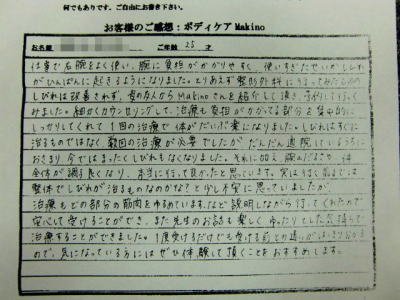 何でもあります。ご自由にお書き下さい。
お客様のご感想：ボディケアMakino
お名前 ご年齢 25 才
仕事で右腕をよく使い、腕に負担がかかりやすく、使いすぎたせいかしびれ
がひんぱんに起きるようになりました。とりあえず整形外科に行ってみたものの
しびれは改善されず、友人からMakinoさんを紹介して頂き、予約して行って
みました。細かくカウンセリングして、治療も負担がかかってる部分を集中的に
しっかりしてくれて1回の治療で体がだいぶ楽になりました。しびれはすぐに
治るものではなく、数回の治療が必要でしたが、だんだん通院しているうちに
おさまり、今ではまったくしびれもなくなりました。それに加え、
全体が調子良くなり、本当に行って良かったと思っています。実は行く前までは
整体でしびれが治るものなのかな？と少し不安に思っていましたが、
治療もどの部分の筋肉をゆるめています。など説明しながら行ってくれたので
安心して受けることができ、また先生のお話も楽しく、ゆったりとした気持ちで
治療することができました。1度受けるだけでも受ける前との違いがはっきり分かる
ので、気になっている方にはぜひ体験して頂くことをおすすめします。